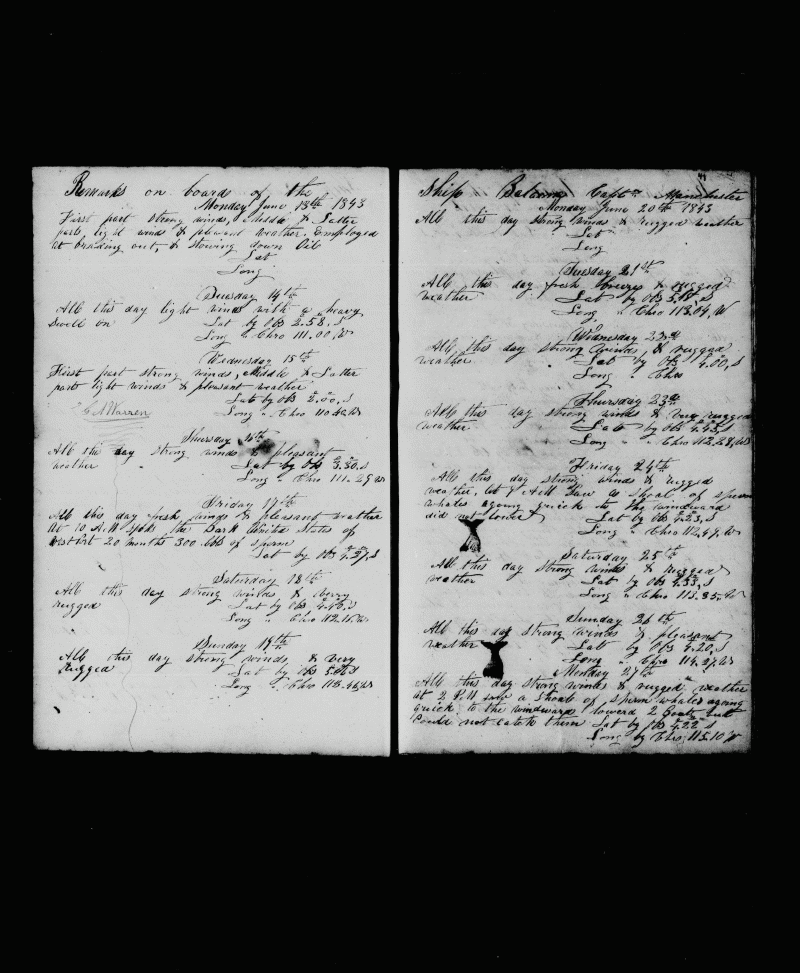 Remarks on board of the
Monday June 13th 1843
First part strong winds, Middle & Latter
parts, light wind & pleasant weather. Employed
at breaking out, & stowing down Oil
Lat
Long
Tuesday 14th
All this day light winds with a heavy
swell on Lat by Obs 2.58. S
Long " Chro 111.00, W
Wednesday 15th
First part strong winds, Middle & Latter
parts light winds & pleasant weather
Lat by Obs 2.00, S
C A Warren Long " Chro 110 W
Thursday 16th
All this day strong winds & pleasant
weather Lat by Obs 3.30. S
Long " Chro 111.29 W
Friday 17th
All this day fresh winds & pleasant weather
At 10 A.M spoke the Bark United States of
20 months 300 bbls of sperm
Lat by Obs 4.27, S
Saturday 18th
All this day strong winds & very
rugged Lat by Obs 4.46. S
Long " Chro 112.15. W
Sunday 19th
All this day strong winds & very
Rugged Lat by Obs S
Long " Chro 113.46, W
Ship Capt
Monday June 20th 1843
All this day strong winds & rugged weather
Lat
Long
Tuesday 21st
All this day fresh breezes & rugged
weather Lat by Obs S
Long " Chro 113.04, W
Wednesday 22nd
All this day strong winds, & rugged
weather Lat by Obs 4.00, S
Long " Chro
Thursday 23rd
All this day strong winds & very rugged
weather Lat by Obs 4.43, S
Long " Chro 112.28, W
Friday 24th
All this day strong winds & rugged
weather, at 8 A.M Saw a Shoal of sperm
whales agoing quick to the windward
did not lower Lat by Obs 4.23, S
Long " Chro 112.47, W
Saturday 25th
All this day strong winds & rugged
weather Lat by Obs 4.33, S
Long " Chro 113.35, W
Sunday 26th
All this day strong winds & pleasant
weather Lat by Obs 4.20, S
Long " Chro 114.27, W
Monday 27th
All this day strong winds & rugged weather
at 2 P.M saw a Shoal of sperm whales agoing
quick to the windward lowered 2 boats but
could not catch them Lat by Obs 4.22 S
Long by Chro 115.10 W